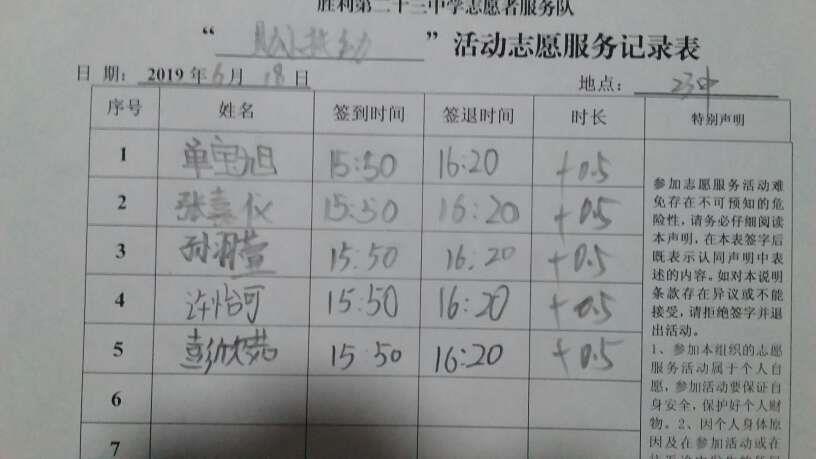 胜利第二十三中学志愿者服务队
“ ”活动志愿服务记录表
日 期: 2019 年 6 月 18 日 地点: 23中
序号 姓名 签到时间 签退时间 时长 特别声明
1 单宝旭 15:50 16:20 +0.5
2 张熹仪 15:50 16:20 +0.5
3 孙羽萱 15:50 16:20 +0.5
4 许怡可 15:50 16:20 +0.5
5 彭欣茹 15:50 16:20 +0.5
6
7
参加志愿服务活动难
免存在不可预知的危
险性,请务必仔细阅读
本声明,在本表签字后
既表示认同声明中表
述的内容。如对本说明
条款存在异议或不能
接受,请拒绝签字并退
出活动。
1、参加本组织的志愿
服务活动属于个人自
愿,参加活动要保证自
身安全,保护好个人财
物。2、因个人身体原
因及在参加活动或在